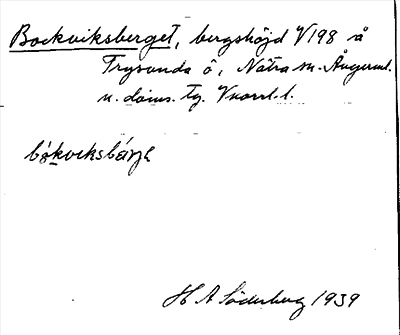 Bockviksberget, bergshöjd V198 å
Trysunda ö, Nätra sn. Ångerml.
n. doms. Tg. Vnorrl. l.
H A Söderberg 1939